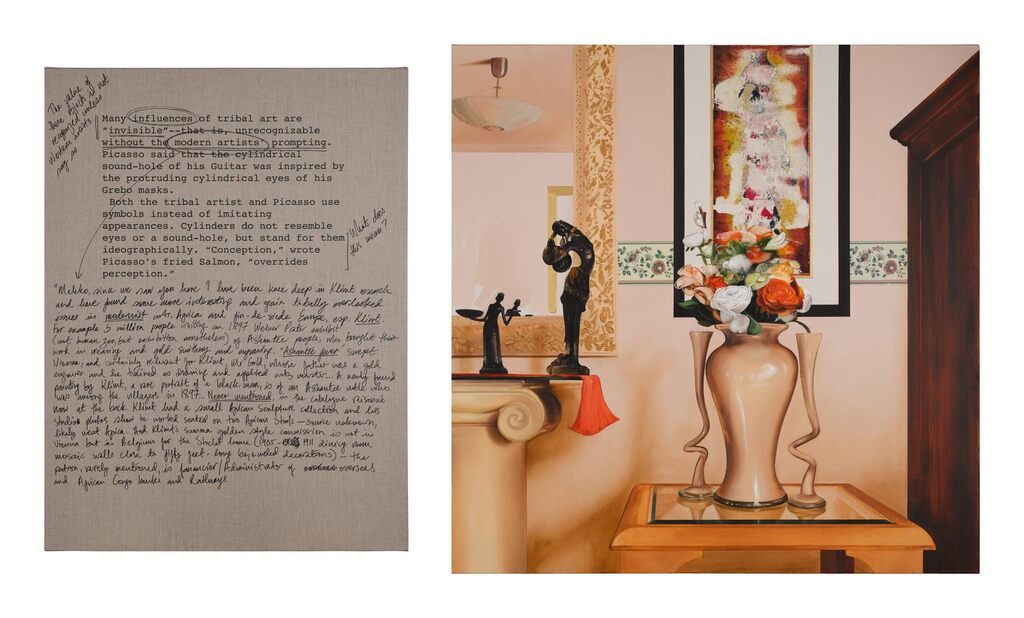 The value of
these objects is not
recognized unless
Western artists
say so
Many influences of tribal art are
"invisible"--that is, unrecognizable
without the modern artists' prompting.
Picasso said that the cylindrical
sound-hole of his Guitar was inspired by
the protruding cylindrical eyes of his
Grebo masks.
Both the tribal artist and Picasso use
symbols instead of imitating
appearances. Cylinders do not resemble
eyes or a sound-hole, but stand for them
ideographically. "Conception," wrote
Picasso's fried Salmon, "overrides
perception."
What does
this mean?
"Meleko, since we saw you here I have been knee deep in Klimt research
and have found some more interesting and again totally overlooked
issues in modernist art, Africa and fin-de-siècle Europe, esp. Klimt.
For example 5 million people visiting an 1897 Wiener Prater exhibit
(not human zoo, but exhibition nonetheless) of Ashantee people, who brought their
work in weaving and gold smithing and engraving. "Ashantee fever" swept
Vienna, and certainly relevant for Klimt, Mr Gold, whose father was a gold
engraver and he trained in drawing and applied arts. A newly found
painting by Klimt, a rare portrait of a black man, is of an Ashantee noble who
was among the villagers in 1897. Never mentioned, in the catalogue raisonné
now at the back Klimt had a small African Sculpture collection and his
studio photos show he worked seated on two African Stools – source unknown,
likely West Africa. And Klimt's summa golden style commission is not in
Vienna but in Belgium for the Stoclet home (1905- 1911 dining room
mosaic walls close to fifty feet-long bejeweled decorations) – the
patron, rarely mentioned, is financier/Administrator of overseas
and African Congo banks and Railways.